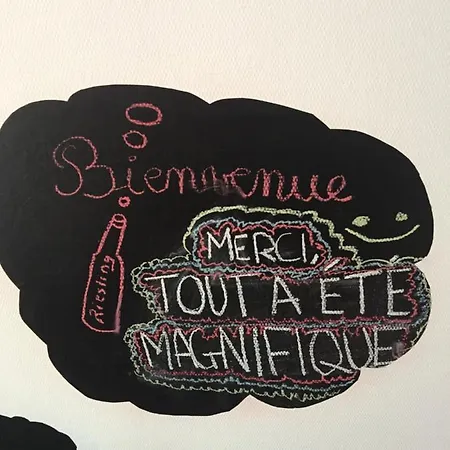 Bienvenue
Riesling
MERCI,
TOUT A ÉTÉ
MAGNIFIQUE